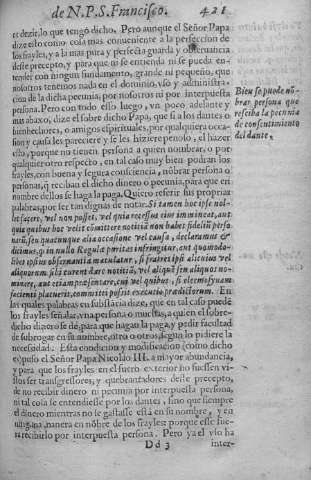 de N. P. S. Francisco. 421
es dezir, lo que tengo dicho. Pero aunque el Señor Papa
dize esto como cosa mas conueniente a la perfeccion de
los frayles, y a la mas pura y perfecta guarda y obseruancia
deste precepto, y para que ni se entienda ni se pueda en-
tender con ningun fundamento, grande ni pequeño, que
nosotros tenemos nada en el dominio, vso y administra-
cion de la dicha pecunia, por nosotros ni por interpuesta
persona. Pero con todo esso luego, vn poco adelante y
mas abaxo, dize el sobre dicho Papa, que si a los dantes o
bienhechores, o amigos espirituales, por qualquiera occa-
sion y causa les pareciere y se les hiziere penoso, el hazer
esto, porque no tienen persona a quien nombrar, o por
qualquier otro respecto, en tal caso muy bien podran los
frayles, con buena y segura consciencia, nõbrar persona o
personas, q̃ reciban el dicho dinero o pecunia, para que en
nombre dellos se haga la paga. Quiero referir sus propias
palabras, por ser tan dignas de notar. Si tamen hoc ipse nol-
let facere, vel non posset, vel quia recessus eius imminet, aut
quia quibus hoc velit cõmittere notitiã non habet fideliũ perso-
narũ, seu quacunque alia occasione vel causa, declaramus &
dicimus, q̃ in nullo Regulæ puritas infringitur, aut quomodo-
libet ipsius obseruantia maculatur, si fratres ipsi alicuius vel
aliquorum sibi curent dare notitiã, vel aliquẽ seu aliquos no-
minare, aut etiam præsentare, cui vel quibus, si eleemosynam
facienti placuerit, committi possit executio prædictorum. En
las quales palabras su substancia dize, que en tal caso puedẽ
los frayles señalar vna persona o muchas, a quien el sobre-
dicho dinero se dè, para que hagan la paga, y pedir facultad
de subrogar en su nombre, otro o otros, segun lo pidiere la
necessidad. Esta condicion y modificacion (como dicho
expuso el Señor Papa Nicolao III. a mayor abundancia,
y para que los frayles en el fuero exterior no fuessen vi-
stos ser transgressores, y quebrantadores deste precepto,
de no recibir dinero ni pecunia por interpuesta persona,
ni tal cosa se entendiesse por los dantes, sino que siempre
el dinero mientras no se gastasse està en su nombre, y en
ninguna manera en nõbre de los frayles: porque esse fue-
ra recibirlo por interpuesta persona. Pero ya el vso ha
Dd 3 inter-
Bien se puede nõ-
brar persona que
reciba la pecunia
de consentimiento
del dante.